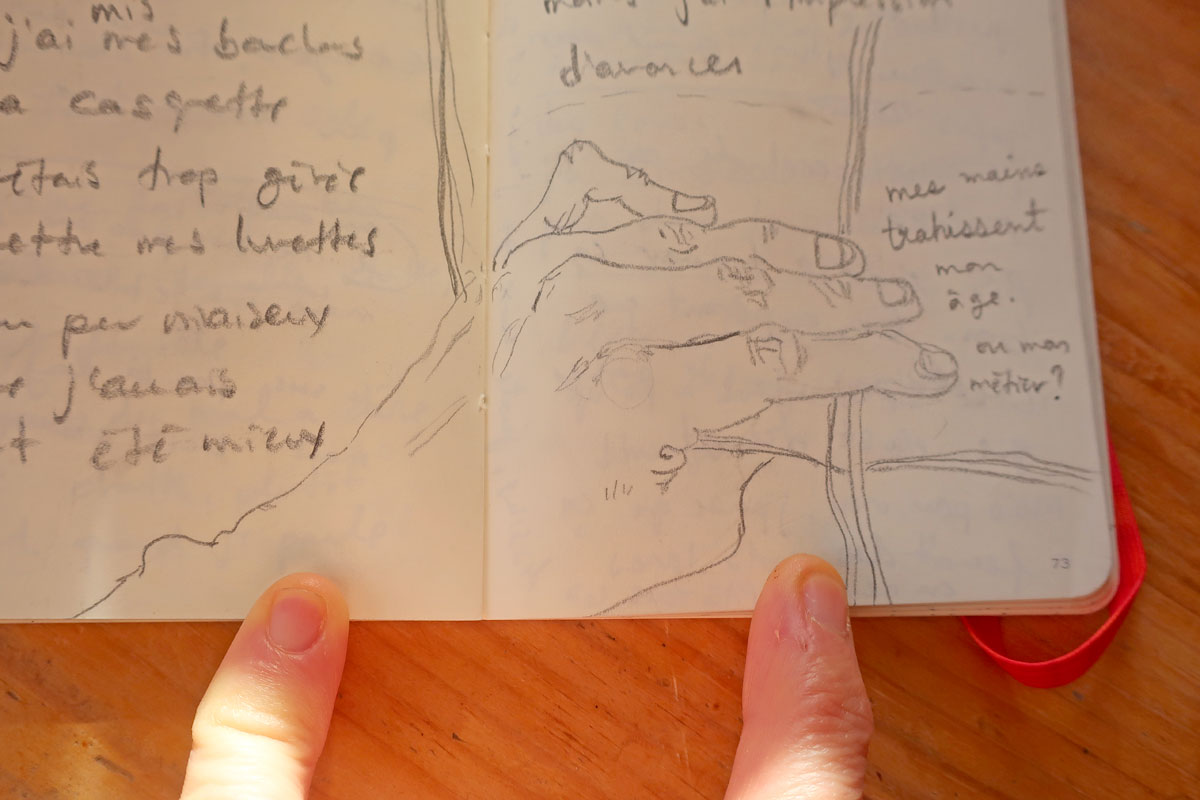 mis
j'ai mes bouchons
a casquette
étais trop gênée
ettre mes lunettes
peu niaiseux
j'aurais
t été mieux
mains j'ai l'impression
d'avancer
mes mains
trahissent
mon
âge.
ou mon
métier?
73